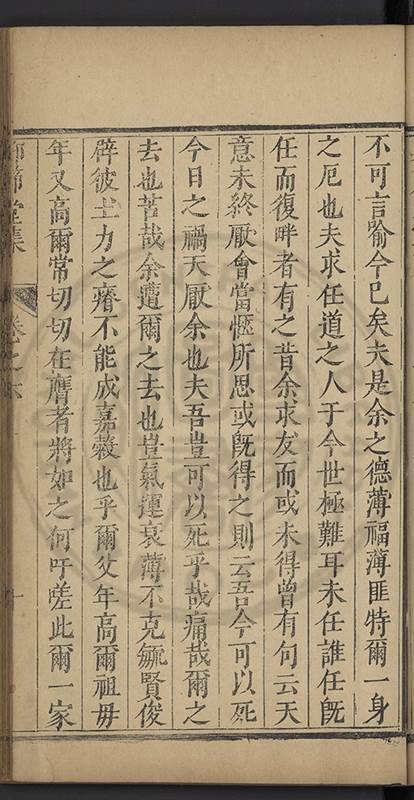 不可言喻今已矣夫是余之德薄福薄匪特爾一身
之厄也夫求任道之人于今世極難耳未任誰任既
任而復畔者有之昔余求友而或未得曾有句云天
意未終厭會當愜所思或既得之則云吾今可以死
今日之禍天厭余也夫吾豈可以死乎哉痛哉爾之
去也苦哉余遭爾之去也豈氣運衰薄不克毓賢俊
辟彼土力之瘠不能成嘉穀也乎爾父年高爾祖母
年又高爾常切切在膺者將如之何吁嗟此爾一家
節堂集
卷之六
十